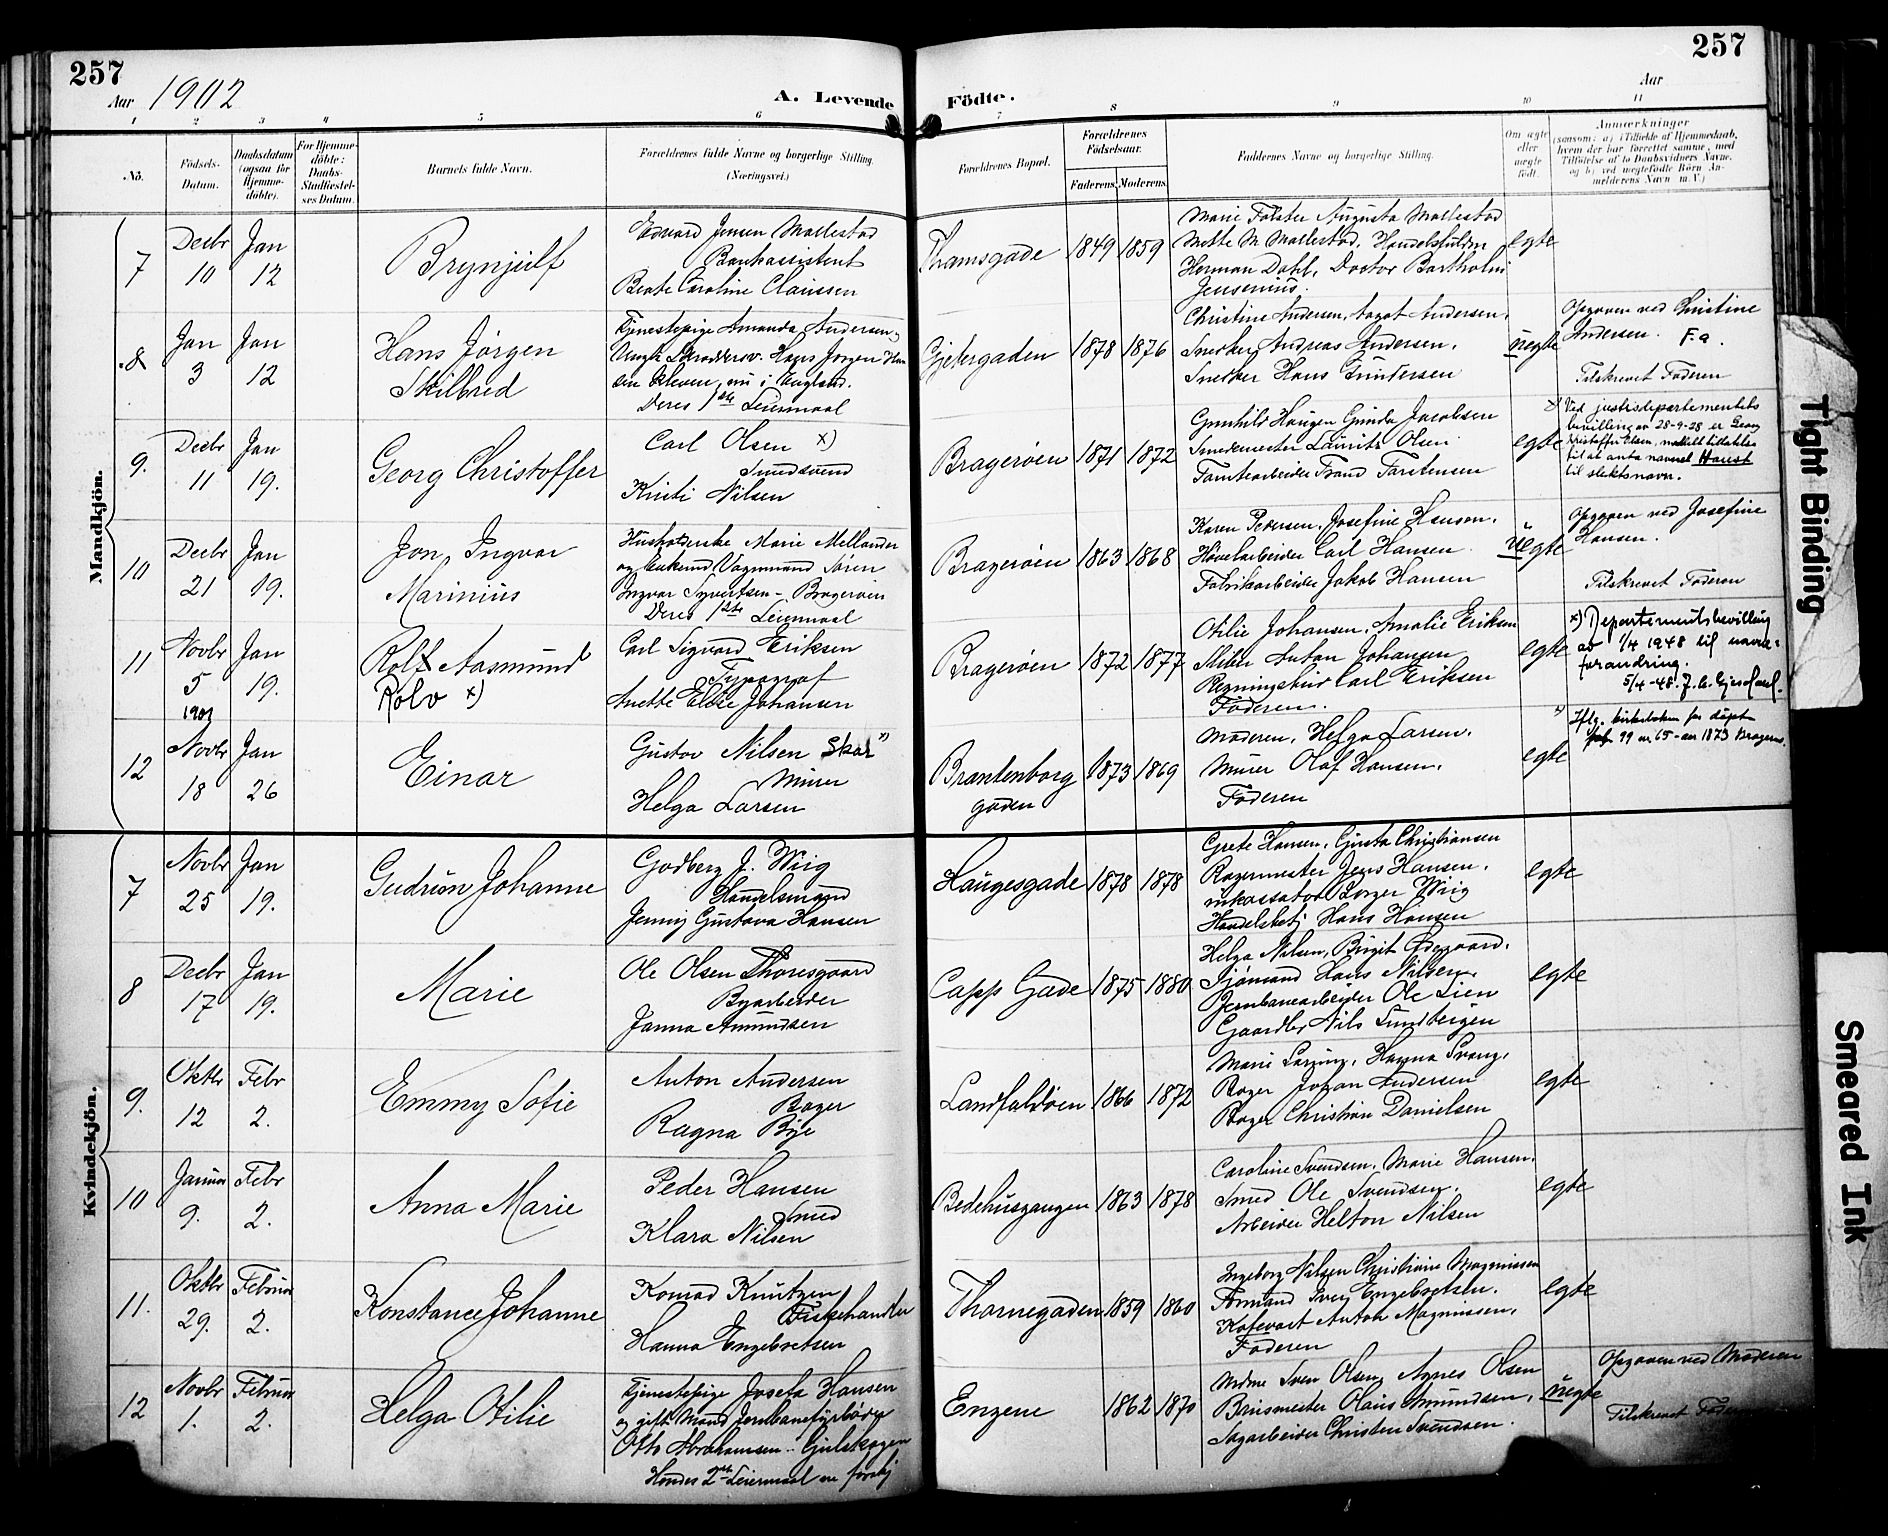 257
257
Aar 1902
A. Levende Födte.
Aar
1 2 3 4 5 6 7 8 9 10 11
No.
Födsels-Datum.
Daabsdatum (ogsaa for Hjemme-döbte).
For Hjemme-döbte: Daabs-Stadfæstel-ses Datum.
Barnets fulde Navn.
Forældrenes fulde Navne og borgerlige Stilling. (Næringsvei.)
Forældrenes Bopæl.
Forældrenes Födselsaar.
Faderens. Moderens.
Faddernes Navne og borgerlige Stilling.
Om ægte eller uægte födt.
Anmærkninger
(saasom: a) i Tilfælde af Hjemmedaab, hvem der har forrettet samme, med Tilföielse af to Daabsvidners Navne, og b) ved uægtefödte Börn An-melderens Navn m. V.)
Mandkjön.
7
Decbr 10
Jan 12
Brynjulf
Edvard Jensen Mallestad
Bankassistent
Beate Caroline Claussen
Thamsgade
1849 1859
Marie Falster Augusta Mallestad
Mette M Mallestad, Handelsfuldm
Herman Dahl, Doctor Bartholm
Jensenius.
egte
8
Jan 3
Jan 12
Hans Jörgen
Skilbred
Tjenestepige Amanda Andersen
Ungk Skrædderov. Hans Jörgen Han
sen Kleven, nu i England.
Deres 1ste Leiermaal
Gjetergaden
1878 1876
Christine Andersen, Aagot Andersen,
Snedker Andreas Andersen.
Snedker Hans Gundersen
uegte
Opgaven ved Christine
Andersen. F.a.
Tilskrevet Faderen
9.
Decbr 11
Jan 19.
Georg Christoffer
Carl Olsen x)
Smedsvend
Kristi Nilsen
Bragerøen
1871 1872
Gunhild Haugen Gunda Jacobsen
Smedemester Lauritz Olsen
Tomtearbeider Trand Torstensen
egte
x) Ved justisdepartementets
bevilling av 28-9-28 er Georg
Kristoffer Olsen, meddelt tillatelse
til at anta navnet Haust
til slektsnavn.
10
Decbr 21
Jan 19.
Jon Ingvar
Marinius
Husholderske Marie Mellander
og Enkemd Vognmand Sören
Ingvar Syvertsen - Bragerøen
Deres 1ste Leiermaal
Bragerøen
1863 1868
Karen Pedersen, Josefine Hansen.
Hövelarbeider Carl Hansen
Fabrikarbeider Jakob Hansen
uegte
Opgaven ved Josefine
Hansen.
Tilskrevet Faderen
11
Novbr 5
1901
Jan 19.
Rolf Aasmund
Rolv x)
Carl Sigvard Eriksen
Typograf
Anette Elise Johansen
Bragerøen
1872 1877
Otilie Johansen, Amalie Eriksen
Sliber Anton Johansen
Regningsbud Carl Eriksen
Faderen.
egte
x) Departementsbevilling
av 1/4 1948 til navne-
forandring.
5/4-48.
12
Novbr 18
Jan 26
Einar
Gustav Nilsen Skar x)
Murer
Helga Larsen
Brantenborg
gaden
1873 1869
Moderen, Helga Larsen.
Murer Olaf Hansen.
Faderen
egte
x) Iflg. kirkeboken for döpte
fol. 99 nr 65 - aar 1873 Bragernes.
Kvindekjön.
7
Novbr 25
Jan 19.
Gudrun Johanne
Godberg J. Wiig
Handelsmand
Jenny Gustava Hansen
Haugesgade
1878 1878
Grete Hansen, Gusta Christiansen
Bagermester Jens Hansen.
inkassator Birger Wiig
Handelsbetj Hans Hansen
egte
8
Decbr 17
Jan 19.
Marie
Ole Olsen Thoresgaard
Byarbeider
Janna Amundsen
Capp Gade
1875 1880
Helga Nilsen, Birgit Ödegaard.
Sjömand Hans Nilsen.
Jernbanearbeider Ole Lien
Gaardbr Nils Sundbergen
egte
9.
Oktbr 12
Febr 2.
Emmy Sofie
Anton Andersen
Bager
Ragna Bye
Landfaldöen
1866 1872
Bager Johan Andersen
Bager Christian Danielsen
egte
10
Januar 9.
Febr 2.
Anna Marie
Peder Hansen
Smed
Klara Nilsen
Bedehusgangen
1863 1878
Caroline Svendsen, Marie Hansen.
Smed Ole Svendsen.
Arbeider Helton Nilsen
egte
11.
Oktbr 29.
Februar 2.
Konstance Johanne
Konrad Knutzen
Fiskehandler
Hanna Engebretsen
Thornegaden
1859 1860
Ingeborg Nilsen Christiane Magnussen
Formand Sverg Engebretsen.
Kofevært Anton Magnussen.
Faderen
egte
12
Novbr 1.
Februar 2.
Helga Otilie
Tjenestepige Josefa Hansen
og gift Mand Jernbanefyrböder
Otto Abrahamsen - Gulskogen
Hendes 2det Leiermaal
Engene
1862 1870
Mdme Sven Olsen, Agnes Olsen
Brusmester Olaus Amundsen,
Sagarbeider Christen Svendsen.
uegte
Opgaven ved Moderen
Tilskrevet Faderen
Tight Binding
Smeared Ink